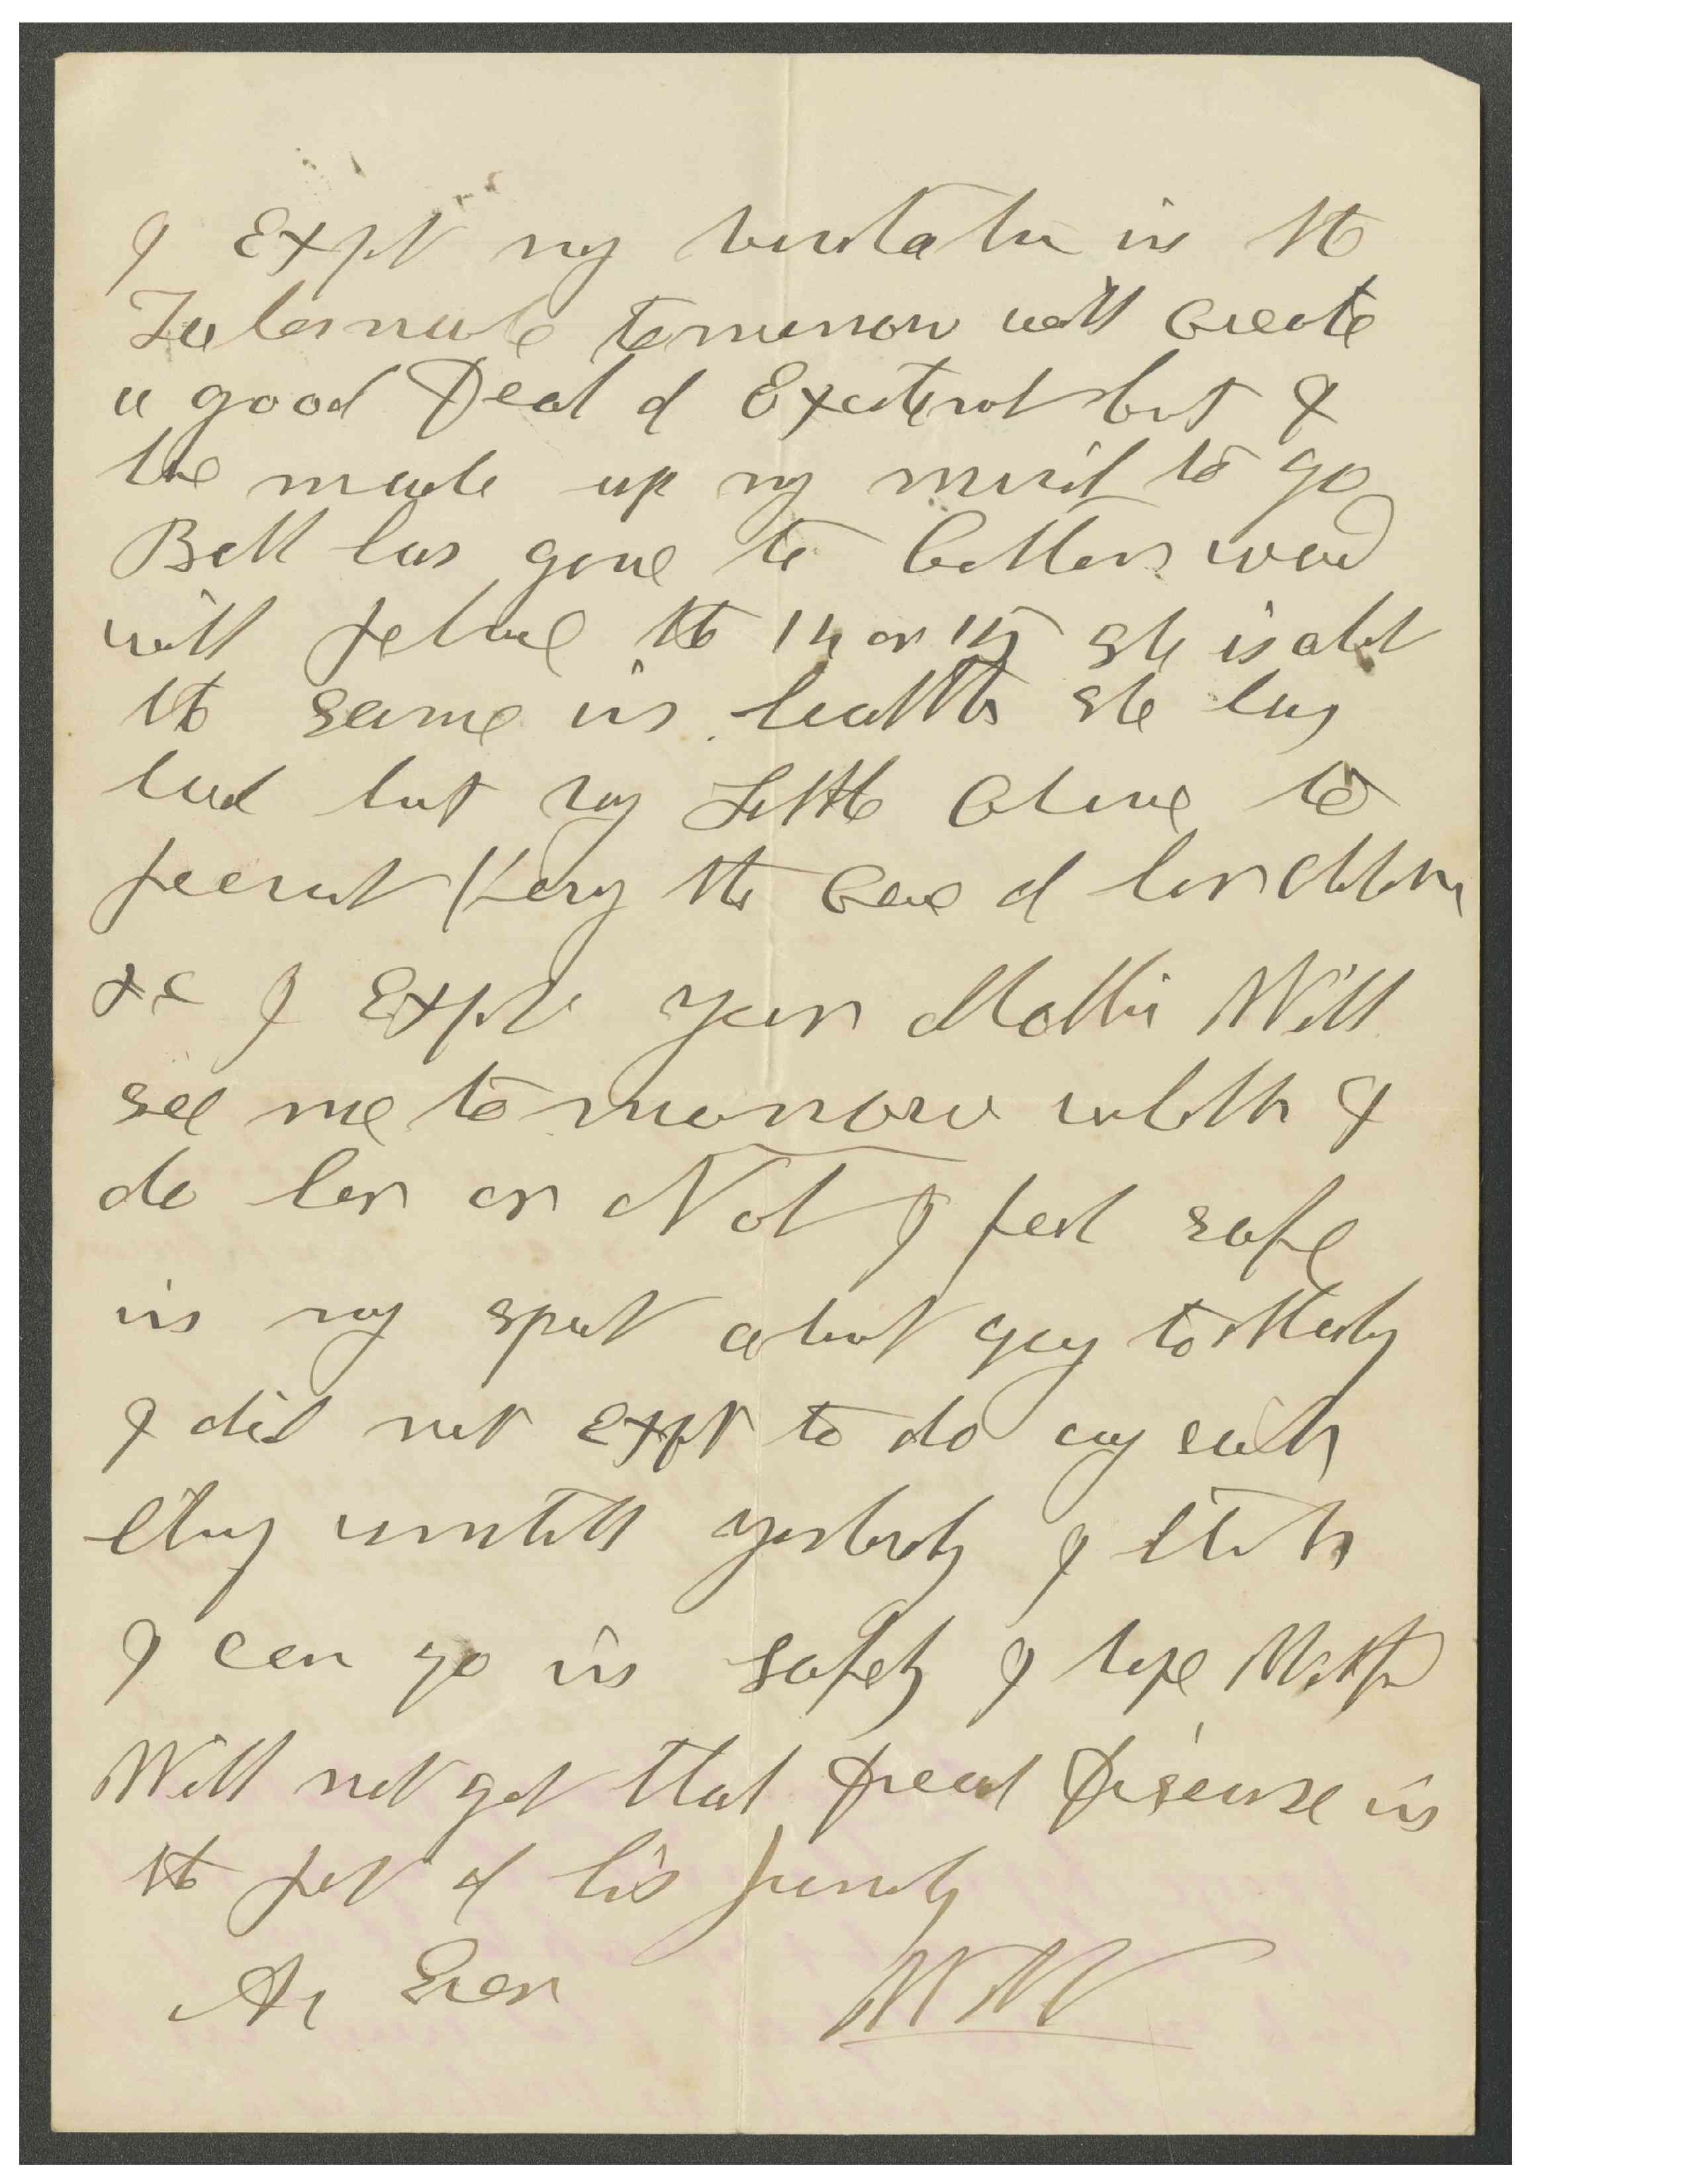 I Expt my visitation in the
Tabernacle tomorrow will Create
a good Deal of Excitemet but I
have made up my mind to go
Bell has gone to Cotton wood
will return the 14 or 15 she is abot
the same in health she has
had but vry Little Chance to
recruit Having the Care of her Childrn
&c I Expt your Mother Will
see me tomorrow whether I
do her or Not I feel safe
in my sprit about going to Meeting
I did not Expt to do any such
thing untill yesterdy I think
I can go in safety I hope
Will not get that dread Disease in
the rest of his family
As Ever WW